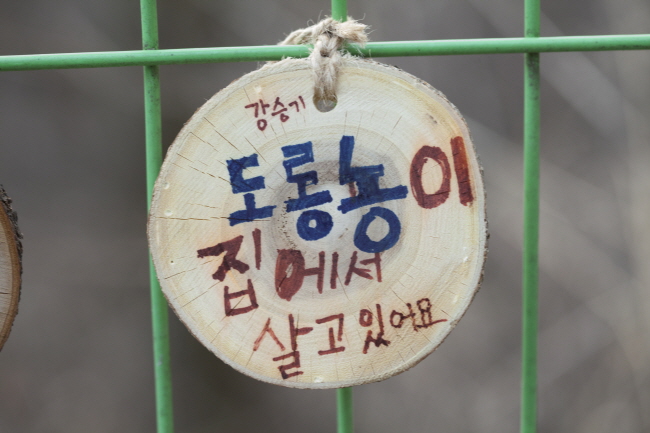 강승기
도롱뇽이
집에서
살고있어요